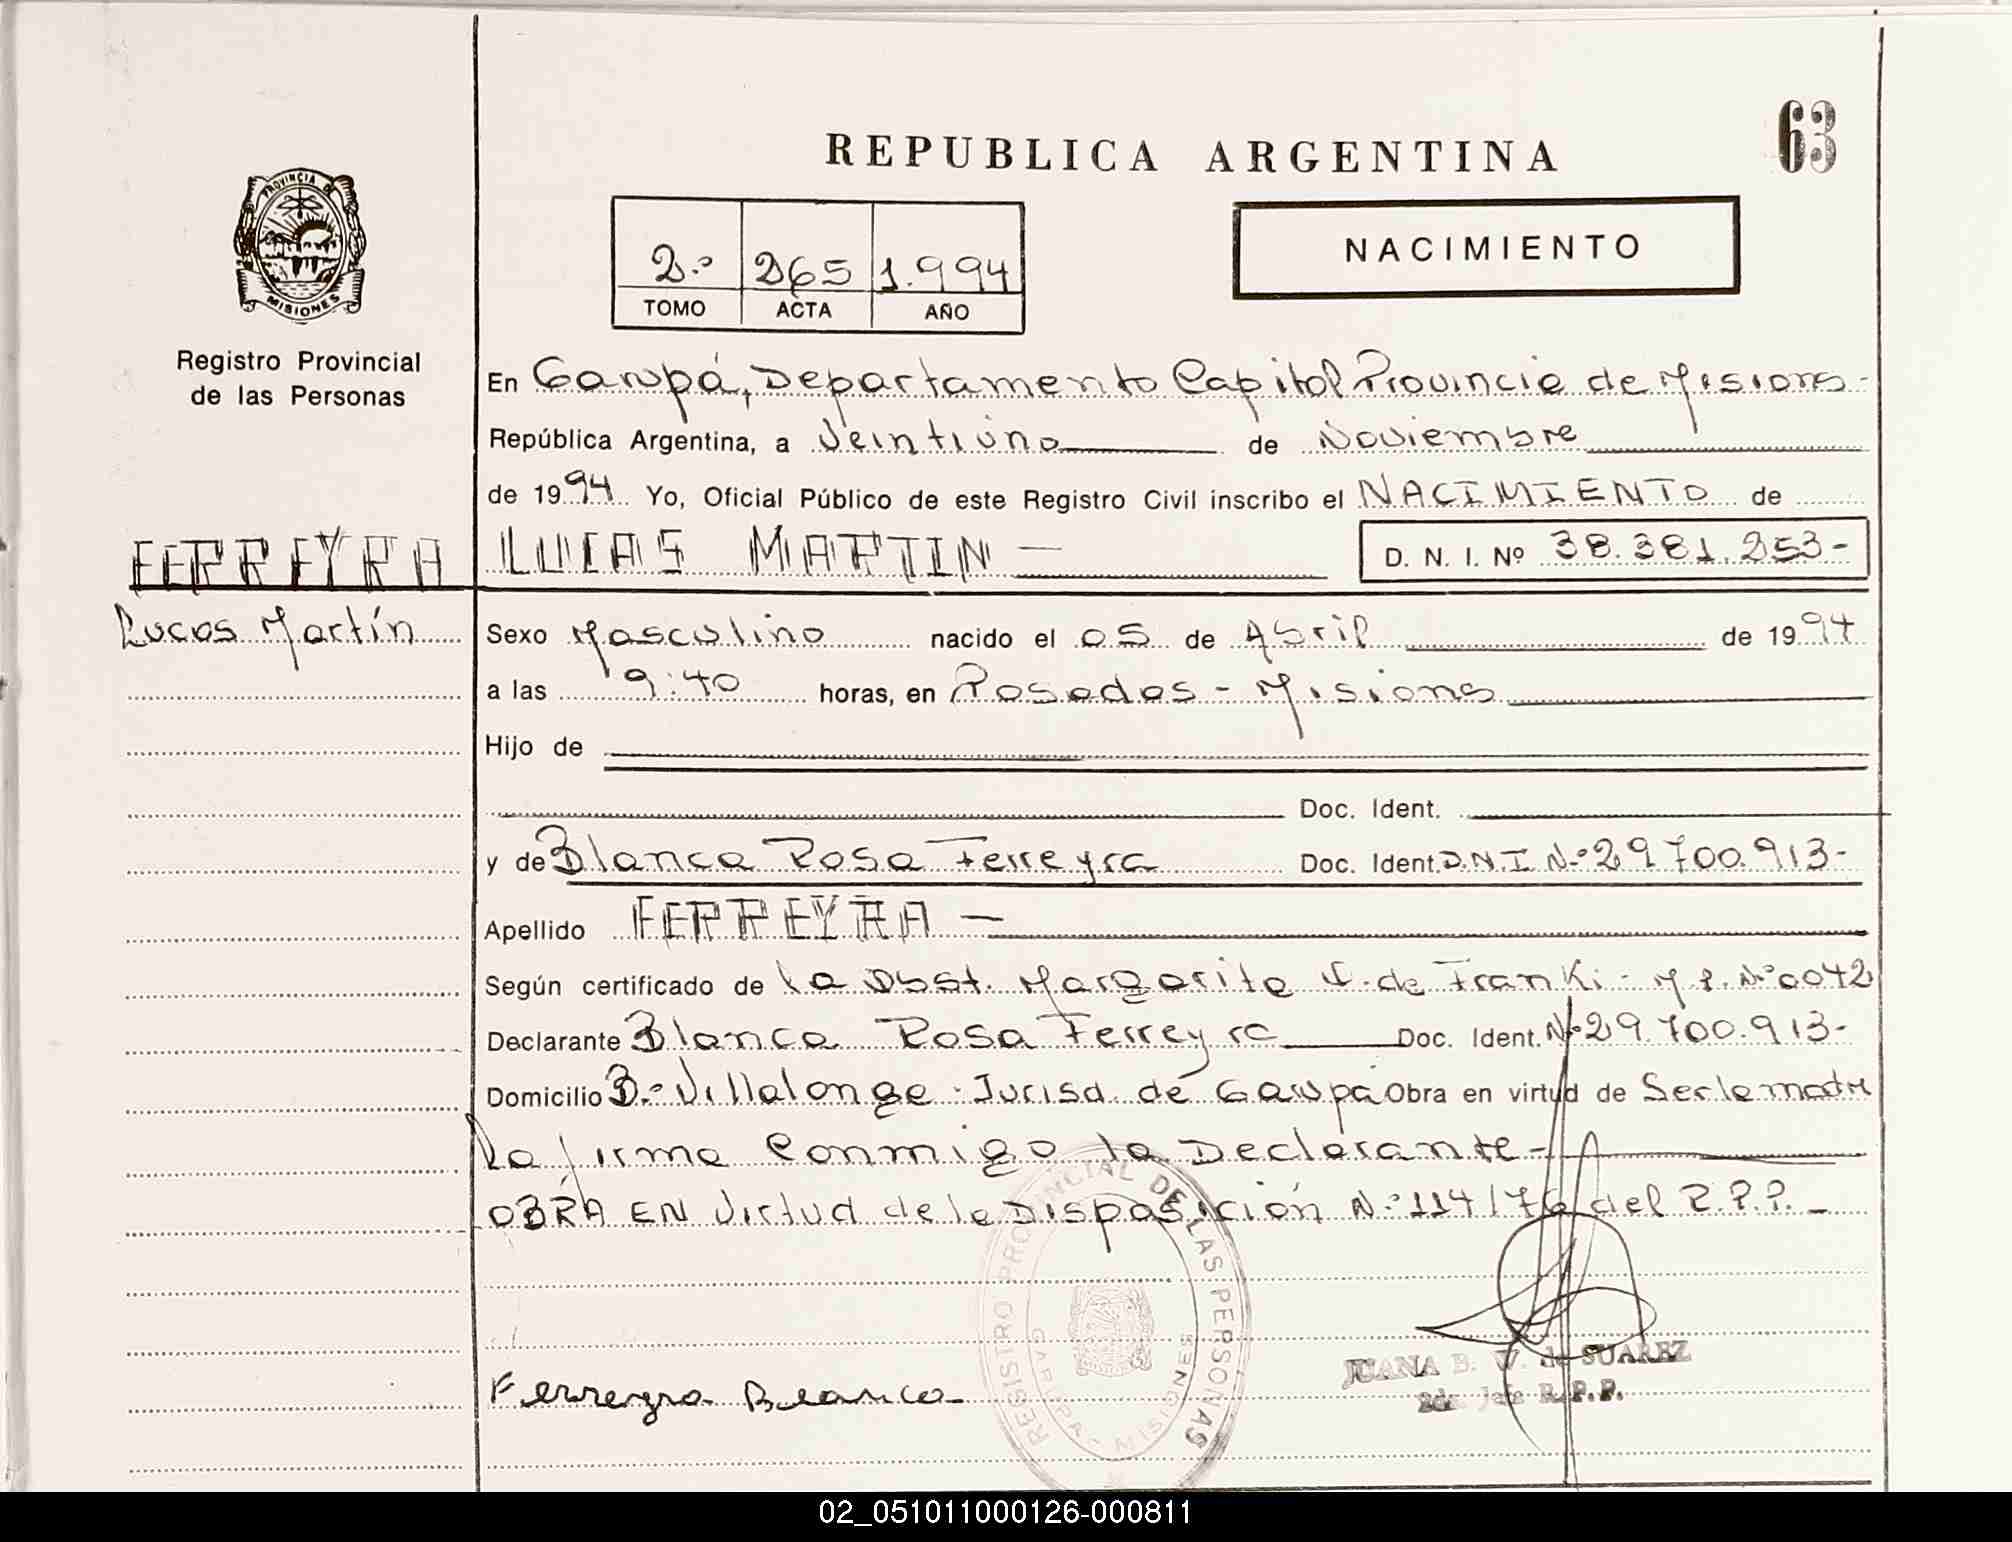 REPUBLICA ARGENTINA
63
PROVINCIA DE
MISIONES
Registro Provincial
de las Personas
2.º 265 1.994
TOMO ACTA AÑO
NACIMIENTO
En Garupá, Departamento Capital Provincia de Misiones-
República Argentina, a Veintiuno de Noviembre
de 1994 Yo, Oficial Público de este Registro Civil inscribo el NACIMIENTO de
FERREYRA LUCAS MARTIN — D. N. I. Nº 38.381.253-
Lucas Martín
Sexo Masculino nacido el 05 de Abril de 1994
a las 9:40 horas, en Posadas - Misiones
Hijo de
Doc. Ident.
y de Blanca Rosa Ferreyra Doc. Ident. D.N.I Nº 29.700.913-
Apellido FERREYRA —
Según certificado de la Obst. Margarita de Franki - M.P. Nº 0042
Declarante Blanca Rosa Ferreyra Doc. Ident. Nº 29.700.913-
Domicilio Bº Villalonga - Jurisd. de Garupá Obra en virtud de Ser la madre
La firma Conmigo la Declarante-
OBRA EN Virtud de la Disposición Nº 114/76 del R.P.P. -
REGISTRO PROVINCIAL DE LAS PERSONAS
GARUPA - MISIONES
Ferreyra Blanca
JUANA B. W. de SUAREZ
R.P.P.
02_051011000126-000811